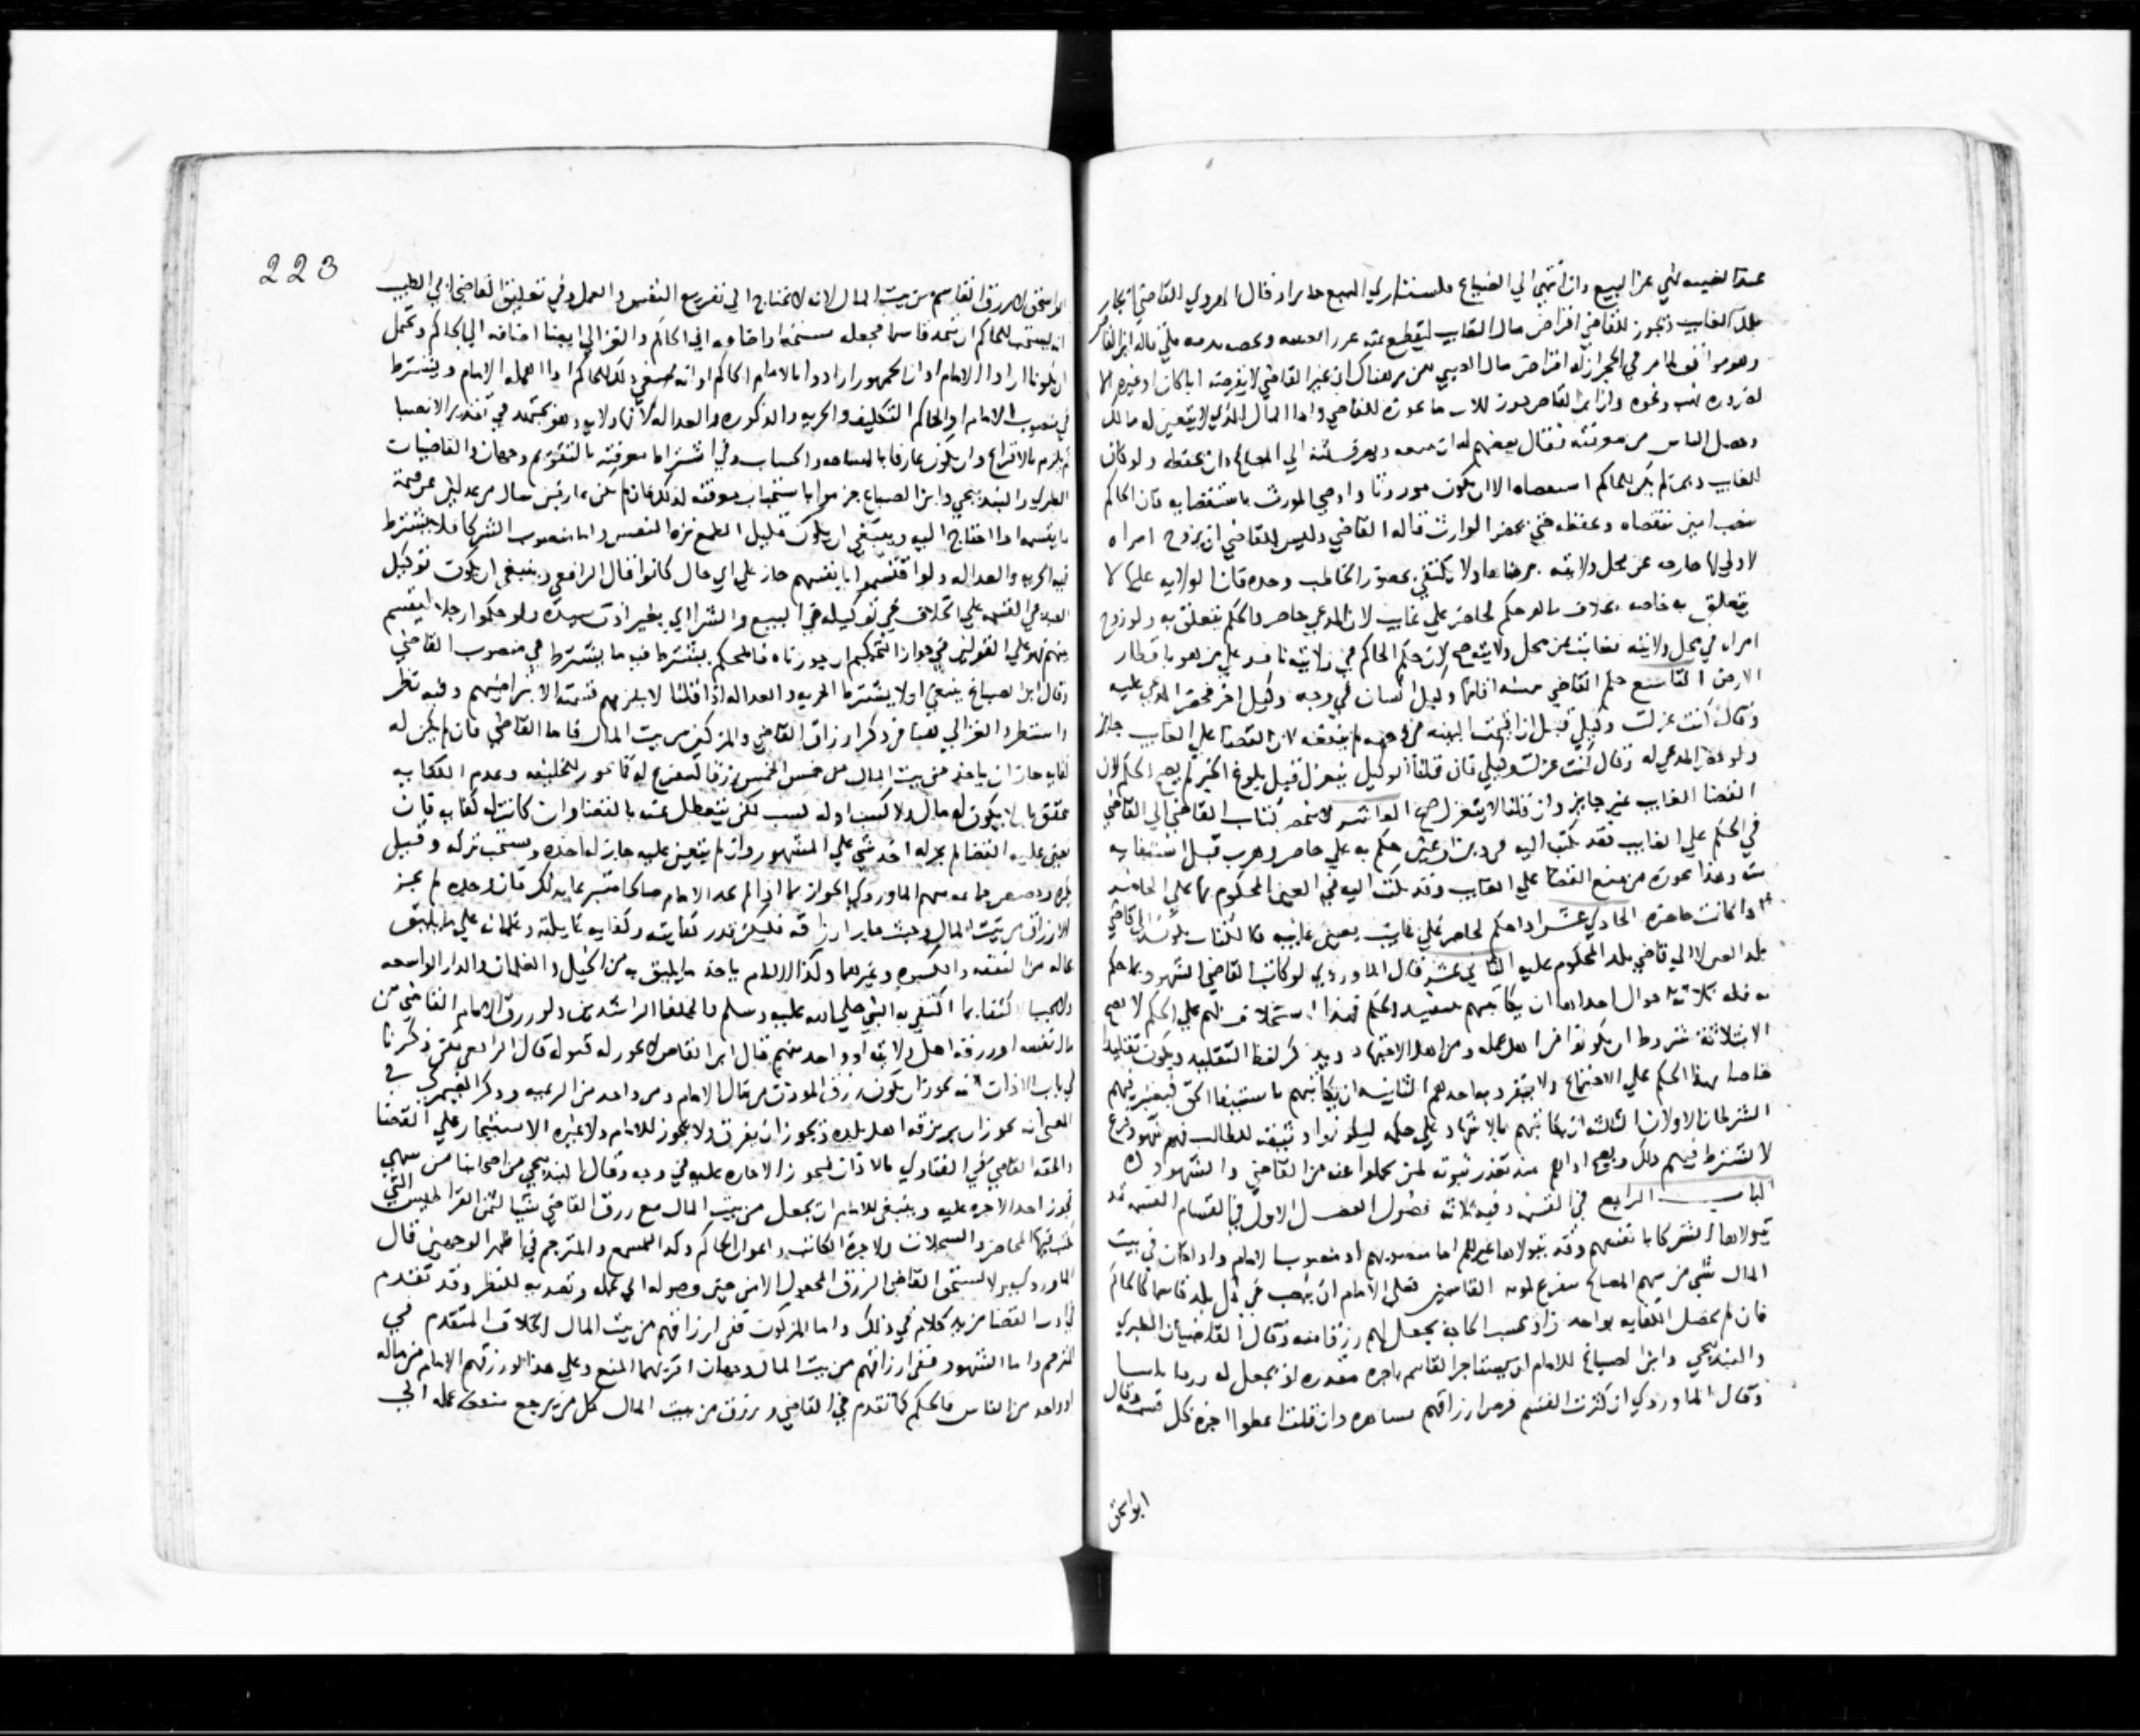 عند الغيبه نهي عن البيع وان انتهي الي الضياع فلمستاري البيع وقال الهروي القاضي
بلد الغايب ويجوز للقاضي اقراض مال الغايب ليقطع عنه قاله ابن القاص
وهو موافق لما مر في الحجر ان له اقراض مال الصبي هناك ان غير القاضي لا يقرضه ابا كان او غيره الا
لضروره نهب ونحوه وان ابن القاص للاب ما يجوزه للقاضي واما المال الذي لا يتعين له مالك
وحصل الياس من معرفته فقال بعضهم له ان يبيعه ويصرف ثمنه الي المصالح وان يحفظه ولو كان
للغايب لم يكن للحاكم الا ان يكون موروثا وادعي المورث فان الحاكم
ينصب امين حتي يحضر الوارث قاله القاضي وليس للقاضي ان يزوج امراه
لا ولي لها خارجه عن محل ولايته برضاها ولا يكتفي بحضور الخاطب وحده فان الولايه عليها لا
يتعلق به خاصه بخلاف ما لو حكم لحاضر علي غايب لان المدعي حاضر والحكم يتعلق به ولو زوج
امراه في محل ولايته بغايب عن محل ولايته صح لان حكم الحاكم في ولايته نافذ علي من هو باقطار
الارض التاسع حكم القاضي وكيل انسان في وجه وكيل اخر فحضر المدعي عليه
وقال كنت عزلت وكيلي قبل ان اقيمت البينه في وجهه لم ينفعه لان القضا علي الغايب جايز
ولو حضر المدعي له وقال كنت عزلت وكيلي فان قلنا الوكيل ينعزل قبل بلوغ الخبر لم يصح الحكم لان
القضا للغايب غير جايز وان قلنا لا ينعزل صح العاشر كتاب القاضي الي القاضي
في الحكم علي الغايب فقد يكتب اليه في دين او عين حكم به علي حاضر وهرب قبل استيفايه
منه وهذا يجوزه من منع القضا علي الغايب وقد يكتب اليه في العين المحكوم بها علي الحاضر
اذا كانت حاضره الحادي عشر اذا حكم لحاضر علي غايب بعين غايبه فالكتاب الي قاضي
بلد العين لا الي قاضي بلد المحكوم عليه الثاني عشر قال الماوردي لو كاتب القاضي الشهود بما حكم
به فله ثلاثة احوال احداها ان يكاتبهم بتنفيذ الحكم فهذا استخلاف لهم علي الحكم لا يصح
الا بثلاثة شروط ان يكونوا من اهل عمله ومن اهل الاجتهاد ويذكر لفظ التقليد ويكون تقليدا
خاصا بهذا الحكم علي الاجتماع ولا ينفرد به احدهم الثانيه ان يكاتبهم باستيفا الحق فيعتبر فيهم
الشرطان الاولان الثالثه ان يكاتبهم بالاشهاد علي حكمه ليكونوا وثيقه للطالب فهم شهود فرع
لا يشترط فيهم ذلك ويصح اداهم عند تعذر ثبوته لمن تحملوا عنه من القاضي والشهود
الباب الرابع في القسمه وفيه ثلاثه فصول الفصل الاول في القسام القسمه قد
يتولاها الشركا بانفسهم وقد يتولاها غيرهم اما منصوبهم او منصوب الامام واذا كان في بيت
المال شي من سهم المصالح القاسمين فعلي الامام ان ينصب في كل بلد قاسما كالحاكم
فان لم تحصل الكفايه بواحد زاد بحسب الحاجه ويجعل لهم رزقا منه وقال القاضيان الطبري
والبندنيجي وابن الصباغ للامام ان يستاجر القاسم باجره مقدره او يجعل له رزقا
وقال الماوردي ان كثرت القسم فرض ارزاقهم وان قلت اعطوا اجره كل قسمه وقال
ابو اسحق
223
ابو اسحق لا يرزق القاسم من بيت المال لانه لا يحتاج الي تفريغ النفس والعمل وفي تعليق القاضي ابي الطيب
انه يستحب للحاكم ان يتخذ قاسما والغزالي ايضا اضافه الي الحاكم ويحتمل
ان يكونا ارادا الامام او ان الجمهور ارادوا بالامام الحاكم للحاكم اذا اهمله الامام ويشترط
في منصوب الامام او الحاكم التكليف والحريه والذكوره والعداله لانها ولايه وهو يجتهد في تقدير الانصبا
ثم يلزم بالاقراع وان يكون عارفا بالمساحه والحساب وفي اشتراط معرفته بالتقويم وجهان والقاضيان
الطبري والبندنيجي وابن الصباغ جزموا باستحباب معرفته لذلك فان لم يكن عارفين سال من عدلين عن قيمة
ما يقسمه اذا احتاج اليه وينبغي ان يكون قليل الطمع نزه النفس واما منصوب الشركا فلا يشترط
فيه الحريه والعداله ولو اقتسموا بانفسهم جاز علي اي حال كانوا قال الرافعي وينبغي ان يكون توكيل
العبد في القسمه علي الخلاف في توكيله في البيع والشرا اي بغير اذن سيده ولو حكموا رجلا ليقسم
بينهم فهو علي القولين في جواز التحكيم ان جوزناه فالمحكم يشترط فيه ما يشترط في منصوب القاضي
وقال ابن الصباغ ينبغي ان لا يشترط الحريه والعداله اذا قلنا لا يلزمهم قسمته الا بتراضيهم وفيه نظر
واستطرد الغزالي هنا في ذكر ارزاق القاضي والمزكين من بيت المال فاما القاضي فان لم يكن له
كفايه جاز ان ياخذ من بيت المال من خمس الخمس رزقا كما يجوز للخليفه وعدم الكفايه
يتحقق بان لا يكون له مال ولا كسب او له كسب لكن يتعطل عنه بالقضا وان كانت له كفايه فان
تعين عليه القضا لم يجز له اخذ شي علي المشهور وان لم يتعين عليه جاز له اخذه ويستحب تركه وقيل
منهم الماوردي الجواز بما اذا لم يجد الامام صالحا متبرعا بذلك فان وجده لم يجز
الارزاق من بيت المال وحيث جاز ارزاقه فليكن قدر كفايته وكفايه عايلته وغلمانه علي ما يليق
بحاله من النفقه والكسوه وغيرهما وكذا الامام ياخذ ما يليق به من الخيل والغلمان والدار الواسعه
ولا يجب اكتفا بما اكتفي به النبي صلي الله عليه وسلم والخلفا الراشدين ولو رزق الامام القاضي من
مال نفسه او رزقه اهل ولايته او واحد منهم قال ابن القاص لا يجوز له قبوله قال الرافعي ذكرنا
في باب الاذان انه يجوز ان يكون رزق الموذن من مال الامام ومن واحد من الرعيه وذكر الصيمري في
المعني انه يجوز ان يرزقه اهل بلده ويجوز ان يفرق ولا يجوز للامام ولا غيره الاستيجار علي القضا
والحقه القاضي في الفتاوي بالاذان فيجوز الاجاره عليه في وجه وقال البندنيجي من اصحابنا من
يجوز اخذ الاجره عليه وينبغي للامام ان يجعل من بيت المال مع رزق القاضي شيا لثمن القراطيس التي
يكتب فيها المحاضر والسجلات ولاجرة الكاتب واعوان الحاكم وكذا المسمع والمترجم في اظهر الوجهين قال
الماوردي ولا يستحق القاضي الرزق المجعول الا من حين وصوله الي عمله وتصديه للنظر وقد تقدم
في ادب القضا مزيد كلام في ذلك واما المزكون ففي ارزاقهم من بيت المال الخلاف المتقدم في
المترجم واما الشهود ففي ارزاقهم من بيت المال وجهان اقربهما المنع وعلي هذا لو رزقهم الامام من ماله
او واحد من الناس فالحكم كما تقدم في القاضي ويرزق من بيت المال كل من يرجع منفعة عمله الي